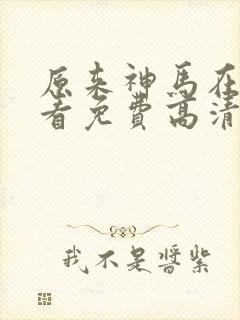 原来神马在
看免费高清
我不是醬紫